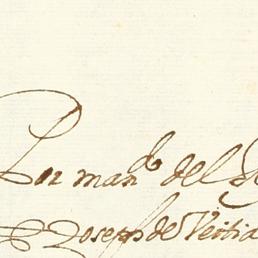 Por man^do del R
D Joseph de Veitia